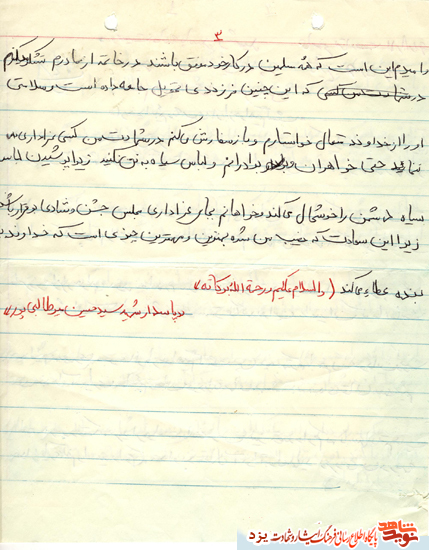 ۳
را میدهم این است که همه مسلمین در کار خود موفق باشند در خاتمه از مادرم تشکر میکنم
در شهادتش کسی که این چنین فرزندی تحویل جامعه داده است و سلامتی
او را از خداوند متعال خواستارم و باز سفارش میکنم در شهادتش کسی عزاداری
نماید حتی خواهران و برادرانم و لباس سیاه به تن نکنند زیرا پوشیدن لباس
سیاه دشمن را خوشحال می کند و بجای عزاداری مجلس جشن و شادی برقرار
زیرا این سعادت که نصیب من شده بهترین و مهمترین چیزی است که خداوند به
بنده عطاء می کند ( والسلام علیکم و رحمة الله و برکاته
پاسدار شهید سید حسین میر طالبی پور
شاهد
نوید
پایگاه اطلاع رسانی فرهنگ ایثار و شهادت یزد